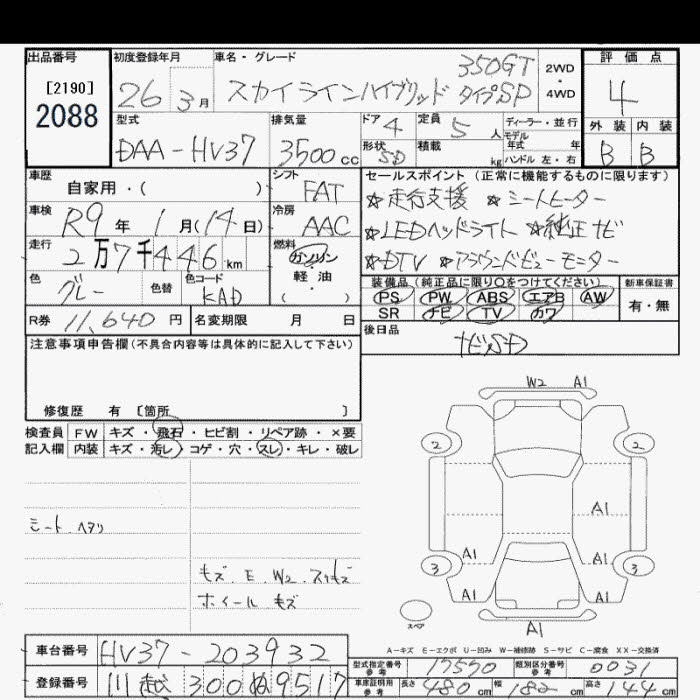 出品番号 初度登録年月 車名・グレード 評価点
[2190]
2088
26 3月 スカイラインハイブリッド 350GT タイプSP 2WD・4WD 4
型式 排気量 ドア 4 定員 5 人 ディーラー・並行 外装 内装
DAA-HV37 3500cc 形状 SD 積載 kg モデル年式 年式 ハンドル 左・右 B B
車歴 シフト セールスポイント (正常に機能するものに限ります)
自家用・( ) FAT ☆走行支援 ☆シートヒーター
車検 R9年 1月(14日) 冷房 AAC ☆LEDヘッドライト ☆純正ナビ
走行 2万7千446km 燃料 ガソリン・軽油・( ) ☆DTV ☆アラウンドビューモニター
色 グレー 色替 色コード KAD 装備品 (純正品に限り○をつけてください) 新車保証書
PS PW ABS エアB AW 有・無
SR ナビ TV カワ
R券 11,640円 名変期限 月 日 後日品
ナビSD
注意事項申告欄(不具合内容等は具体的に記入して下さい)
修復歴 有 [箇所 ]
検査員 FW キズ・飛石・ヒビ割・リペア跡・×要
記入欄 内装 キズ・汚レ・コゲ・穴・スレ・キレ・破レ
W2 A1
2 2
シート ヘタリ
A1
A1 A1
3 3
キズ.E.W2.スリキズ
ホイール キズ
A1 A1
スペア
A1
A-キズ E-エクボ U-凹み W-補修跡 S-サビ C-腐食 XX-交換済
車台番号 HV37-203932 型式指定番号 参考 17550 類別区分番号 参考 0031
登録番号 川越 300 ぬ 9517 車庫証明用 参考 長さ 480cm 幅 182cm 高さ 144cm